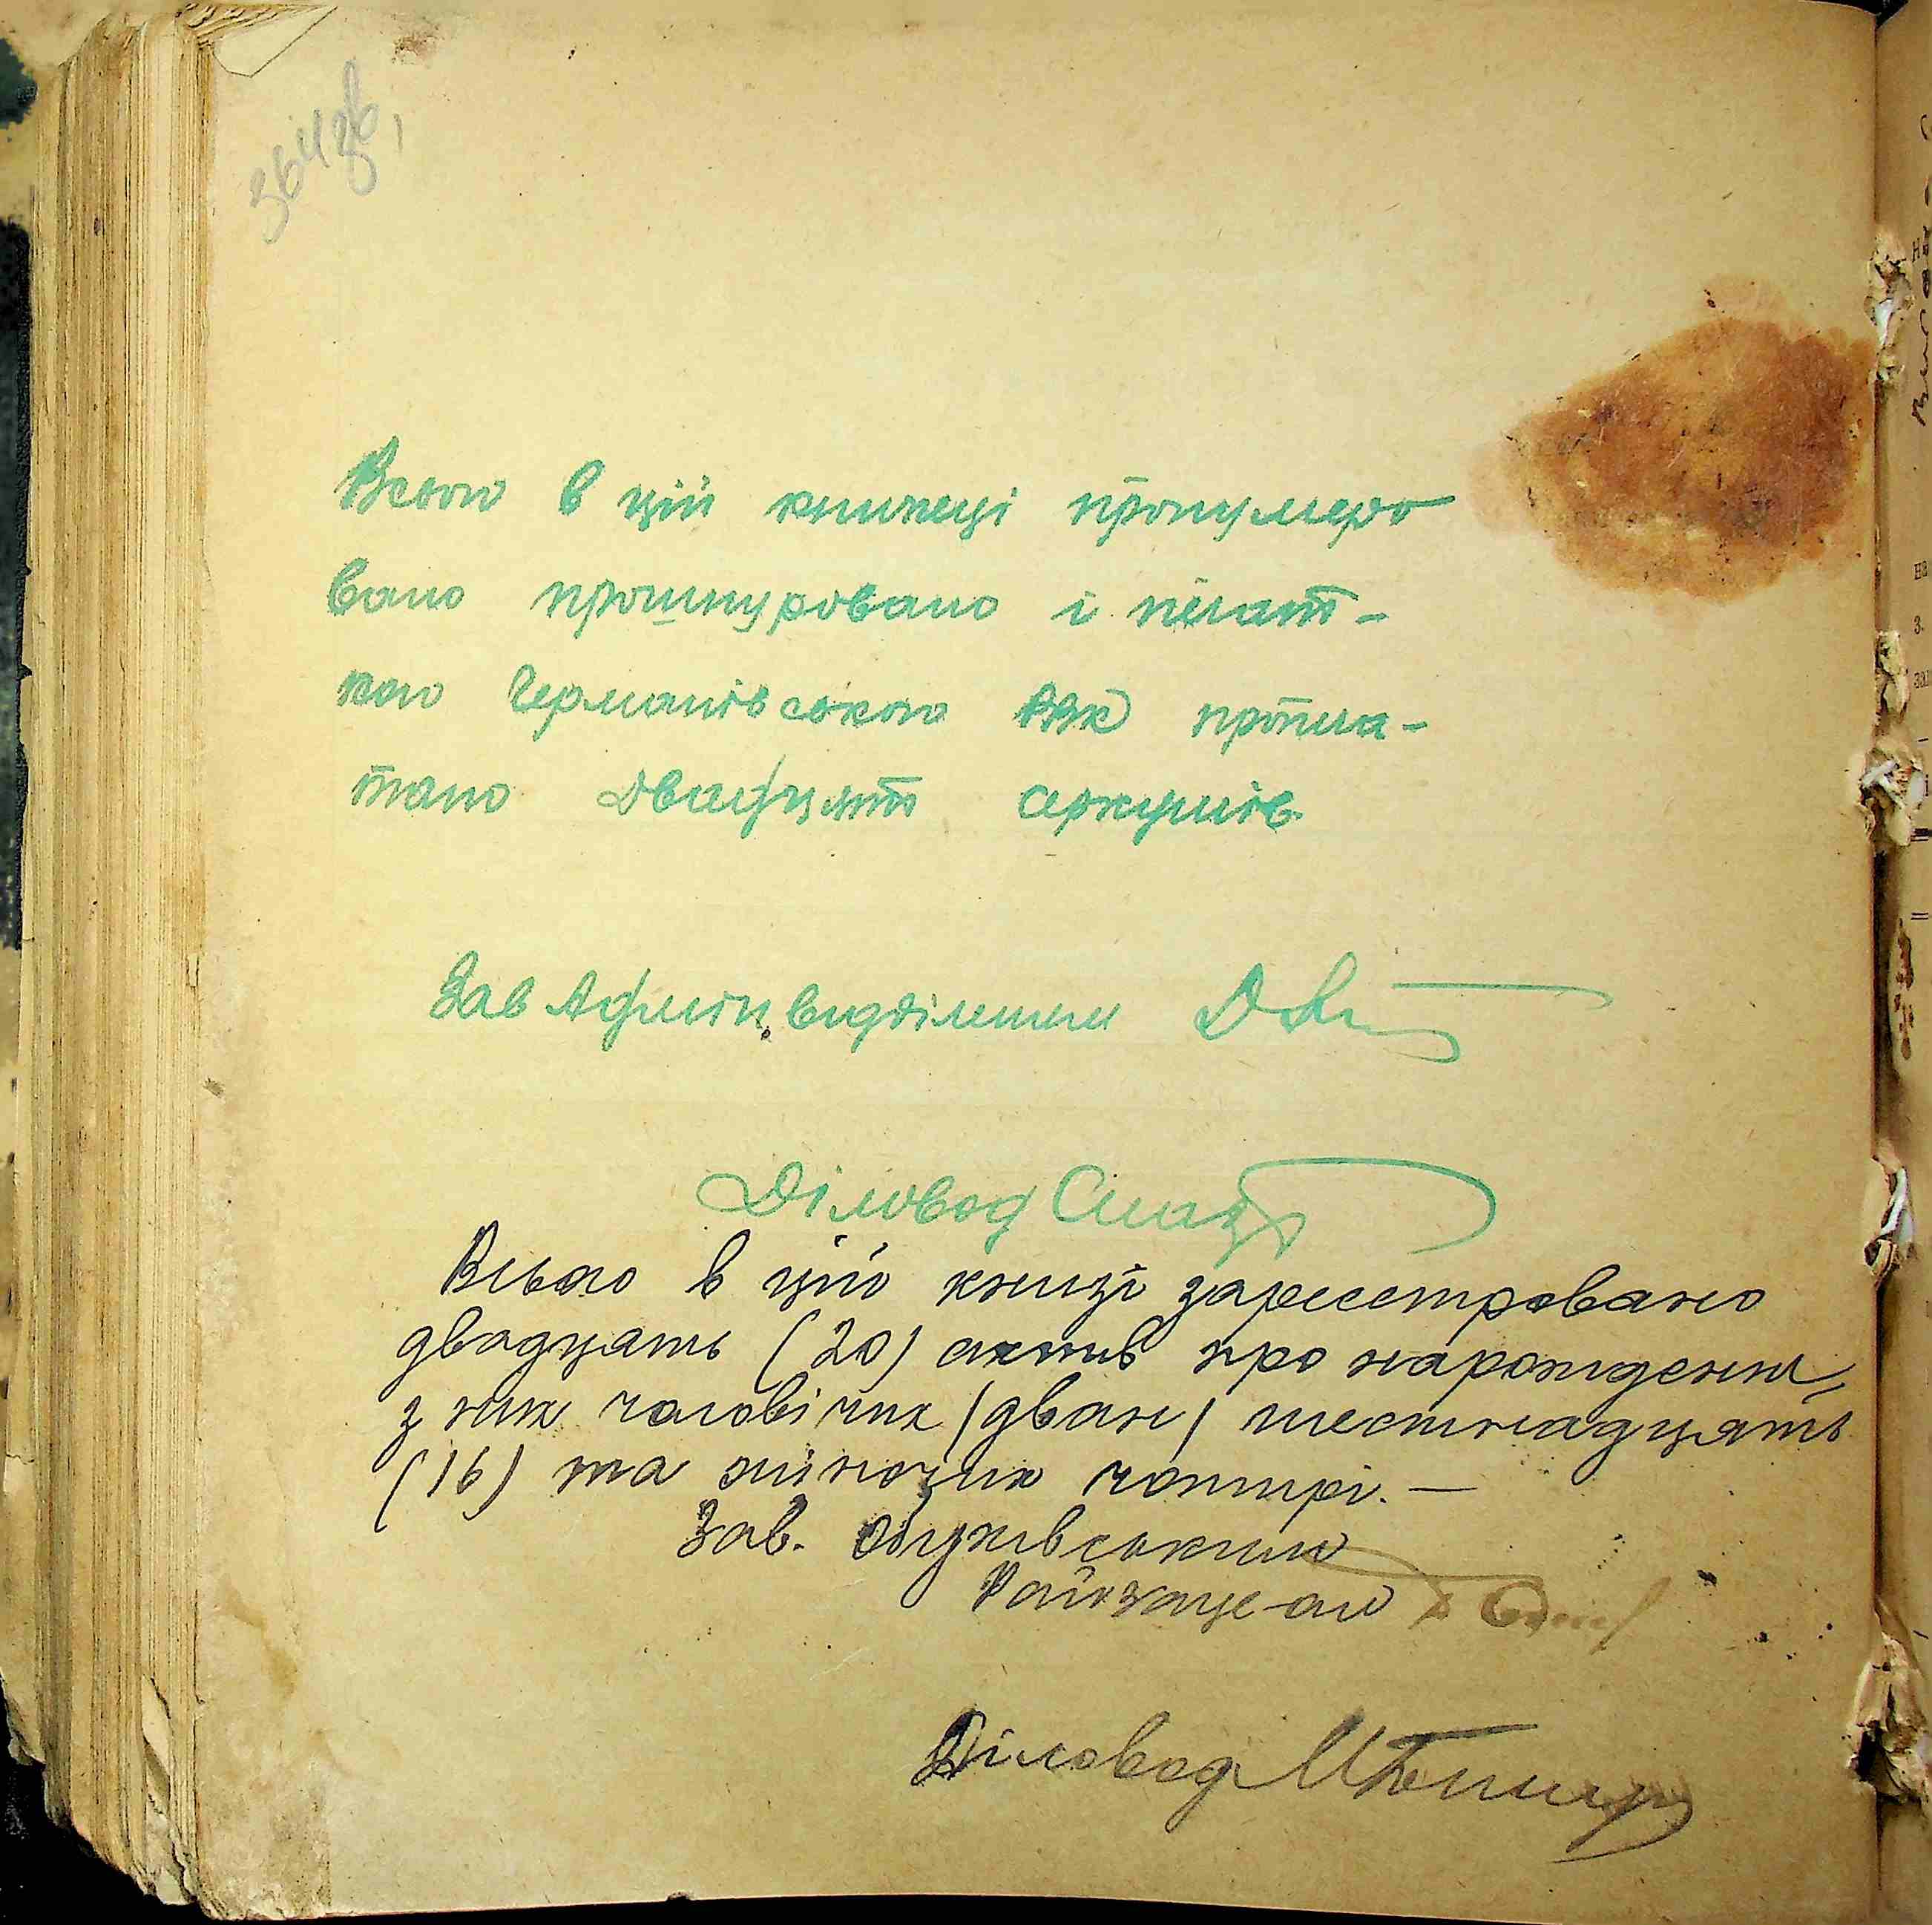 364зв,
Всього в цій книжеці пронумеро
вано прошнуровано і печат-
кою Германівського РВК пропеча-
тано двадцять аркушів.
Зав Адмін. відділення
Діловод
Всього в цій книзі зареєстровано
двадцять (20) актів про нарождення,
з них чоловічих /двано/ шестнадцять
(16) та жіночих чотирі. —
Зав. Обухівським
Райзаце-ом
Діловод